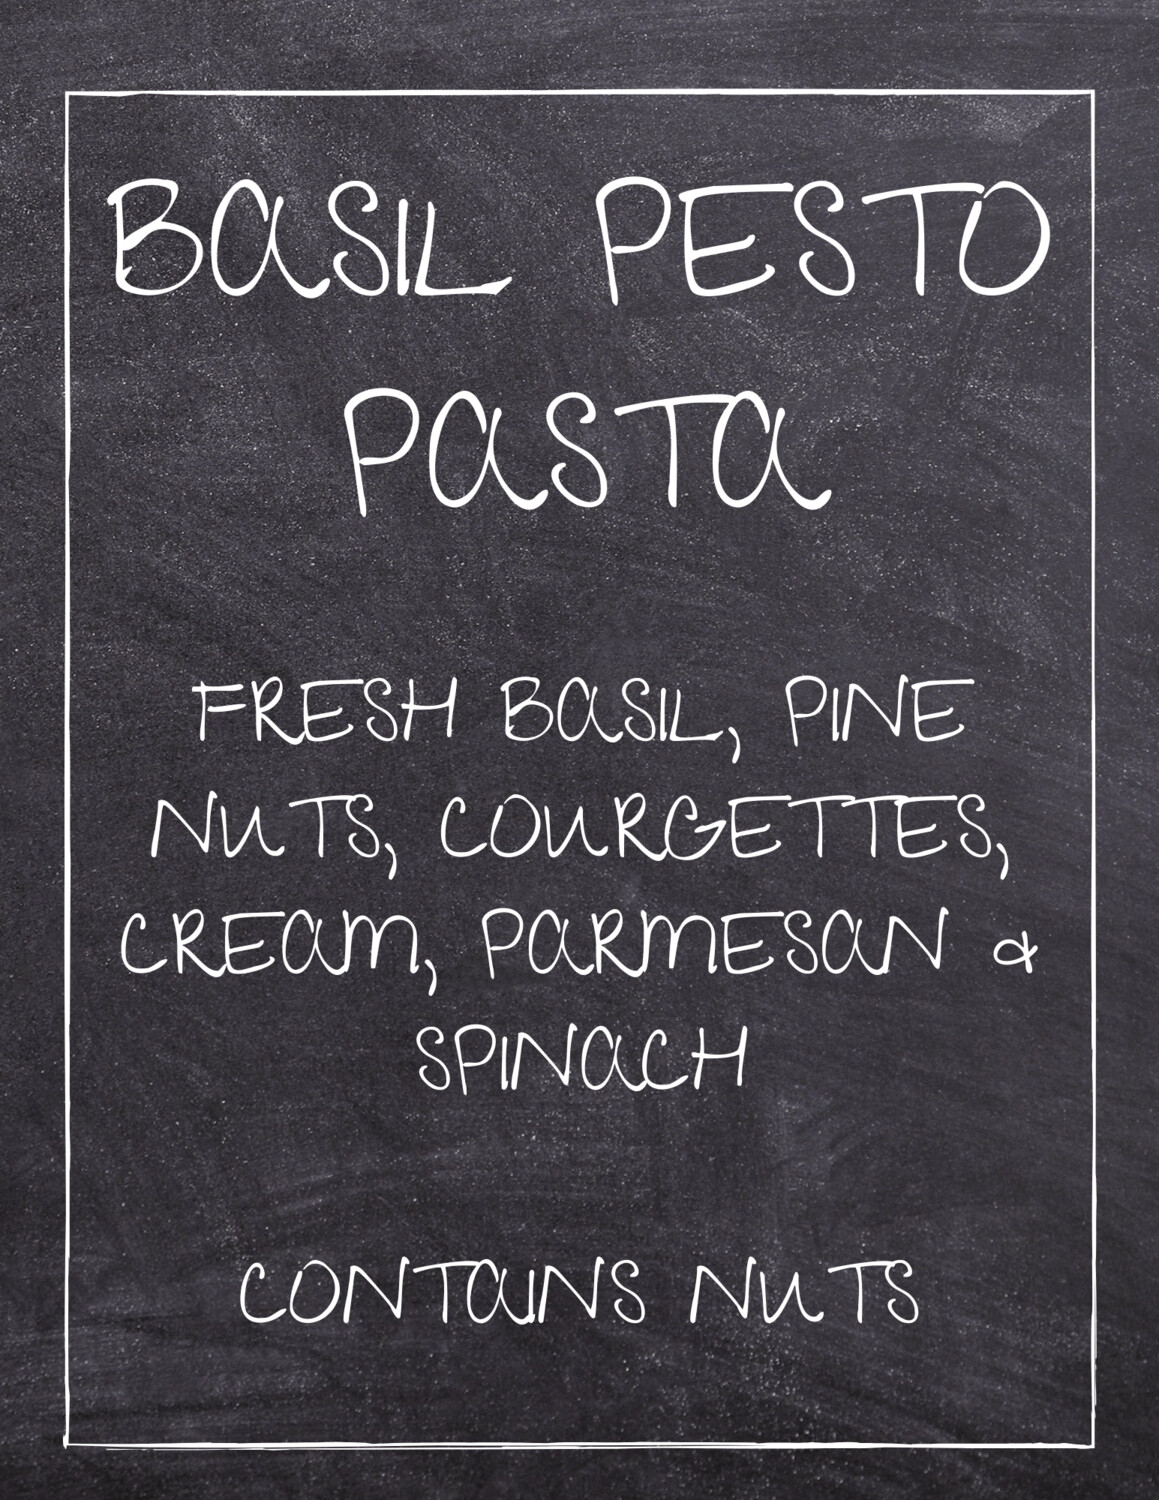 BASIL PESTO
PASTA
FRESH BASIL, PINE
NUTS, COURGETTES,
CREAM, PARMESAN &
SPINACH
CONTAINS NUTS